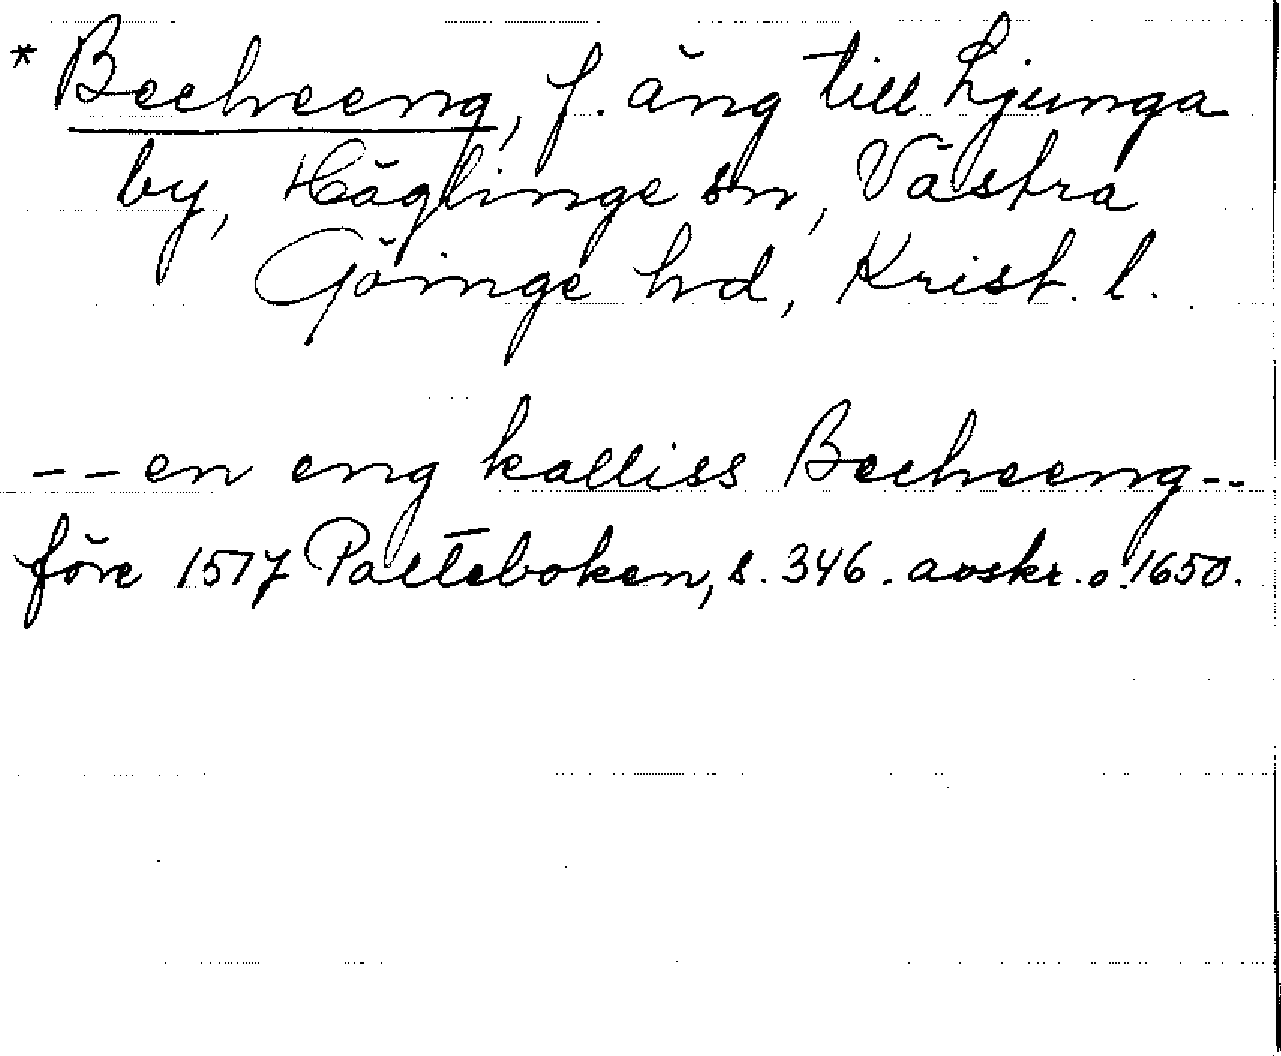 * Becheeng, f. äng till Ljunga
by, Häglinge sn, Västra
Göinge hd, Krist. l.
-- en eng kalliss Becheeng --
före 1517 Palteboken, s. 346. avskr. o. 1650.